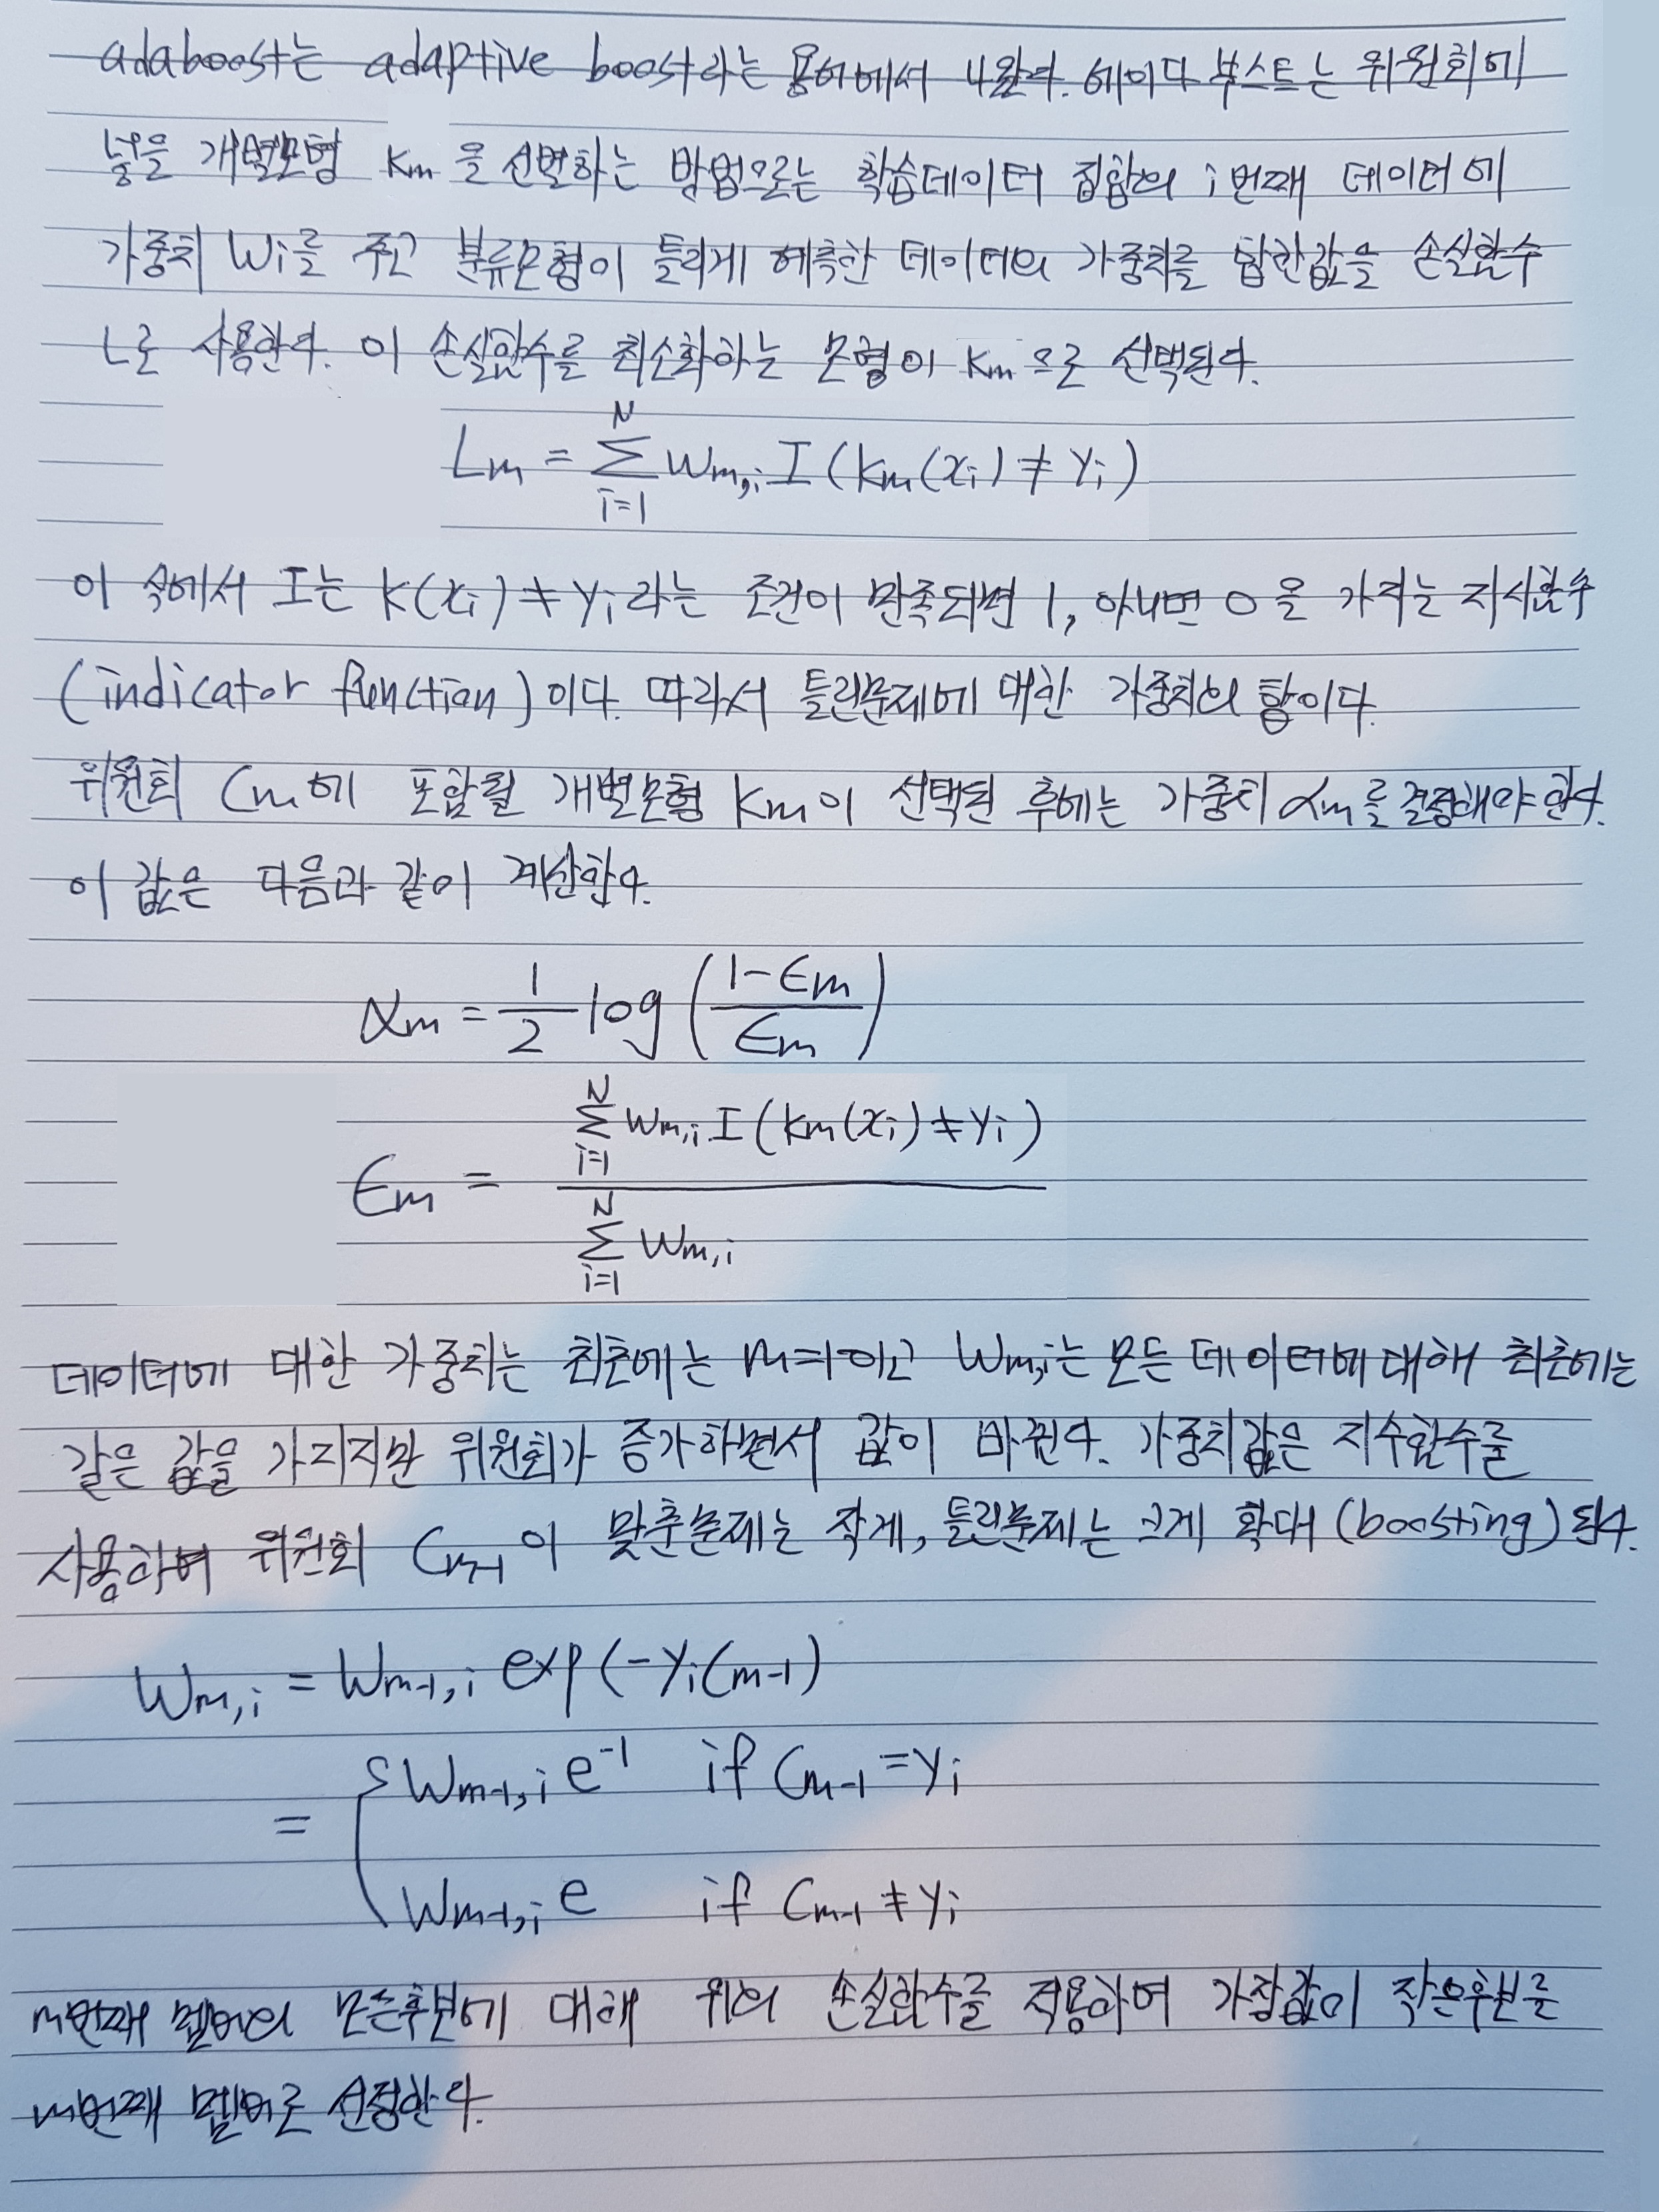 adaboost는 adaptive boost라는 용어에서 나왔다. 에이다 부스트는 위원회에
넣을 개별모형 km 을 선별하는 방법으로는 학습데이터 집합의 i번째 데이터에
가중치 wi를 주고 분류모형이 틀리게 예측한 데이터의 가중치를 합한값을 손실함수
L로 사용한다. 이 손실함수를 최소화하는 모형이 km으로 선택된다.
Lm = Σ_{i=1}^{N} wm,i I(km(xi) ≠ yi)
이 속에서 I는 k(xi) ≠ yi라는 조건이 만족되면 1, 아니면 0을 가지는 지시함수
(indicator function)이다. 따라서 틀린문제에 대한 가중치의 합이다.
위원회 Cm에 포함될 개별모형 km이 선택된 후에는 가중치 αm를 결정해야한다.
이 값은 다음과 같이 계산한다.
αm = 1/2 log((1-ϵm)/ϵm)
ϵm = Σ_{i=1}^{N} wm,i I(km(xi) ≠ yi) / Σ_{i=1}^{N} wm,i
데이터에 대한 가중치는 최초에는 m=1이고 wm,i는 모든 데이터에 대해 최초에는
같은 값을 가지지만 위원회가 증가하면서 값이 바뀐다. 가중치값은 지수함수를
사용하여 위원회 Cm-1이 맞춘문제는 작게, 틀린문제는 크게 확대(boosting)된다.
wm,i = wm-1,i exp(-yiCm-1)
= { wm-1,i e^-1 if Cm-1 = yi
wm-1,i e if Cm-1 ≠ yi
m번째 멤버의 모든후보에 대해 위의 손실함수를 적용하여 가장값이 작은후보를
m번째 멤버로 선정한다.